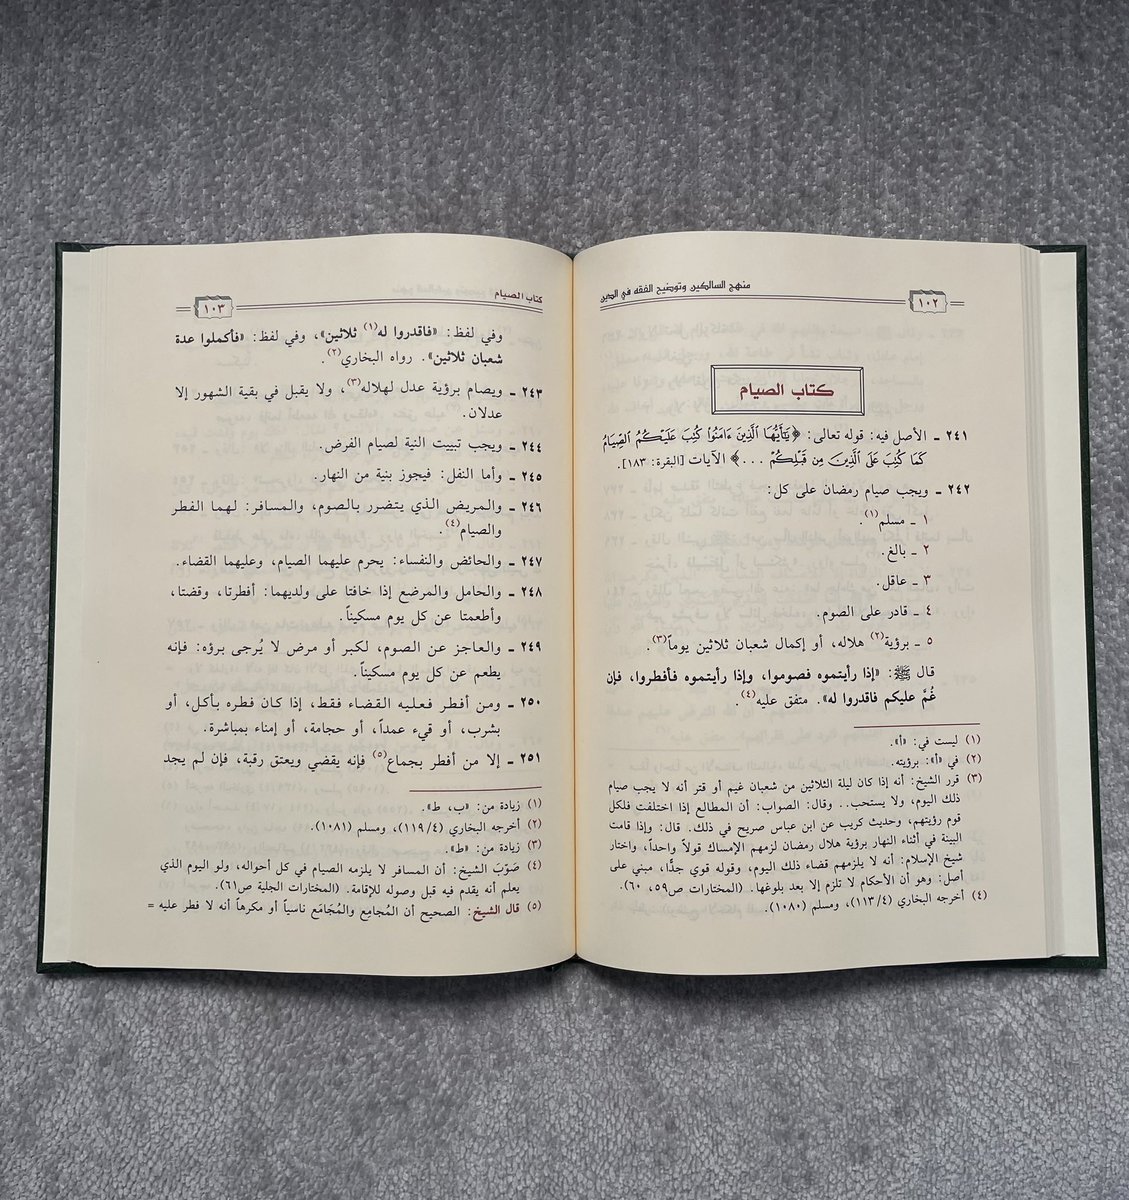 ١٠٢
منهج السالكين وتوضيح الفقه في الدين
كتاب الصيام
٢٤١ ـ الأصل فيه: قوله تعالى: ﴿يَٰٓأَيُّهَا ٱلَّذِينَ ءَامَنُوا۟ كُتِبَ عَلَيْكُمُ ٱلصِّيَامُ
كَمَا كُتِبَ عَلَى ٱلَّذِينَ مِن قَبْلِكُمْ ...﴾ الآيات [البقرة: ١٨٣].
٢٤٢ ـ ويجب صيام رمضان على كل:
١ ـ مسلم(١).
٢ ـ بالغ.
٣ ـ عاقل.
٤ ـ قادر على الصوم.
٥ ـ برؤية(٢) هلاله، أو إكمال شعبان ثلاثين يوماً(٣).
قال ﷺ: «إذا رأيتموه فصوموا، وإذا رأيتموه فأفطروا، فإن
غُمَّ عليكم فاقدروا له». متفق عليه(٤).
(١) ليست في: «أ».
(٢) في «أ»: برؤيته.
(٣) قرر الشيخ: أنه إذا كان ليلة الثلاثين من شعبان غيم أو قتر أنه لا يجب صيام
ذلك اليوم، ولا يستحب.. وقال: الصواب: أن المطالع إذا اختلفت فلكل
قوم رؤيتهم، وحديث كريب عن ابن عباس صريح في ذلك. قال: وإذا قامت
البينة في أثناء النهار برؤية هلال رمضان لزمهم الإمساك قولاً واحداً، واختار
شيخ الإسلام: أنه لا يلزمهم قضاء ذلك اليوم، وقوله قوي جدًّا، مبني على
أصل: وهو أن الأحكام لا تلزم إلا بعد بلوغها. (المختارات ص٥٩، ٦٠).
(٤) أخرجه البخاري (١١٣/٤)، ومسلم (١٠٨٠).
كتاب الصيام
١٠٣
وفي لفظ: «فاقدروا له(١) ثلاثين»، وفي لفظ: «فأكملوا عدة
شعبان ثلاثين». رواه البخاري(٢).
٢٤٣ ـ ويصام برؤية عدل لهلاله(٣)، ولا يقبل في بقية الشهور إلا
عدلان.
٢٤٤ ـ ويجب تبييت النية لصيام الفرض.
٢٤٥ ـ وأما النفل: فيجوز بنية من النهار.
٢٤٦ ـ والمريض الذي يتضرر بالصوم، والمسافر: لهما الفطر
والصيام(٤).
٢٤٧ ـ والحائض والنفساء: يحرم عليهما الصيام، وعليهما القضاء.
٢٤٨ ـ والحامل والمرضع إذا خافتا على ولديهما: أفطرتا، وقضتا،
وأطعمتا عن كل يوم مسكيناً.
٢٤٩ ـ والعاجز عن الصوم، لكبر أو مرض لا يُرجى برؤه: فإنه
يطعم عن كل يوم مسكيناً.
٢٥٠ ـ ومن أفطر فعليه القضاء فقط، إذا كان فطره بأكل، أو
بشرب، أو قيء عمداً، أو حجامة، أو إمناء بمباشرة.
٢٥١ ـ إلا من أفطر بجماع(٥) فإنه يقضي ويعتق رقبة، فإن لم يجد
(١) زيادة من: «ب، ط».
(٢) أخرجه البخاري (١١٩/٤)، ومسلم (١٠٨١).
(٣) زيادة من: «ط».
(٤) صَوّبَ الشيخ: أن المسافر لا يلزمه الصيام في كل أحواله، ولو اليوم الذي
يعلم أنه يقدم فيه قبل وصوله للإقامة. (المختارات الجلية ص٦١).
(٥) قال الشيخ: الصحيح أن المُجامِع والمُجَامَع ناسياً أو مكرهاً أنه لا فطر عليه =